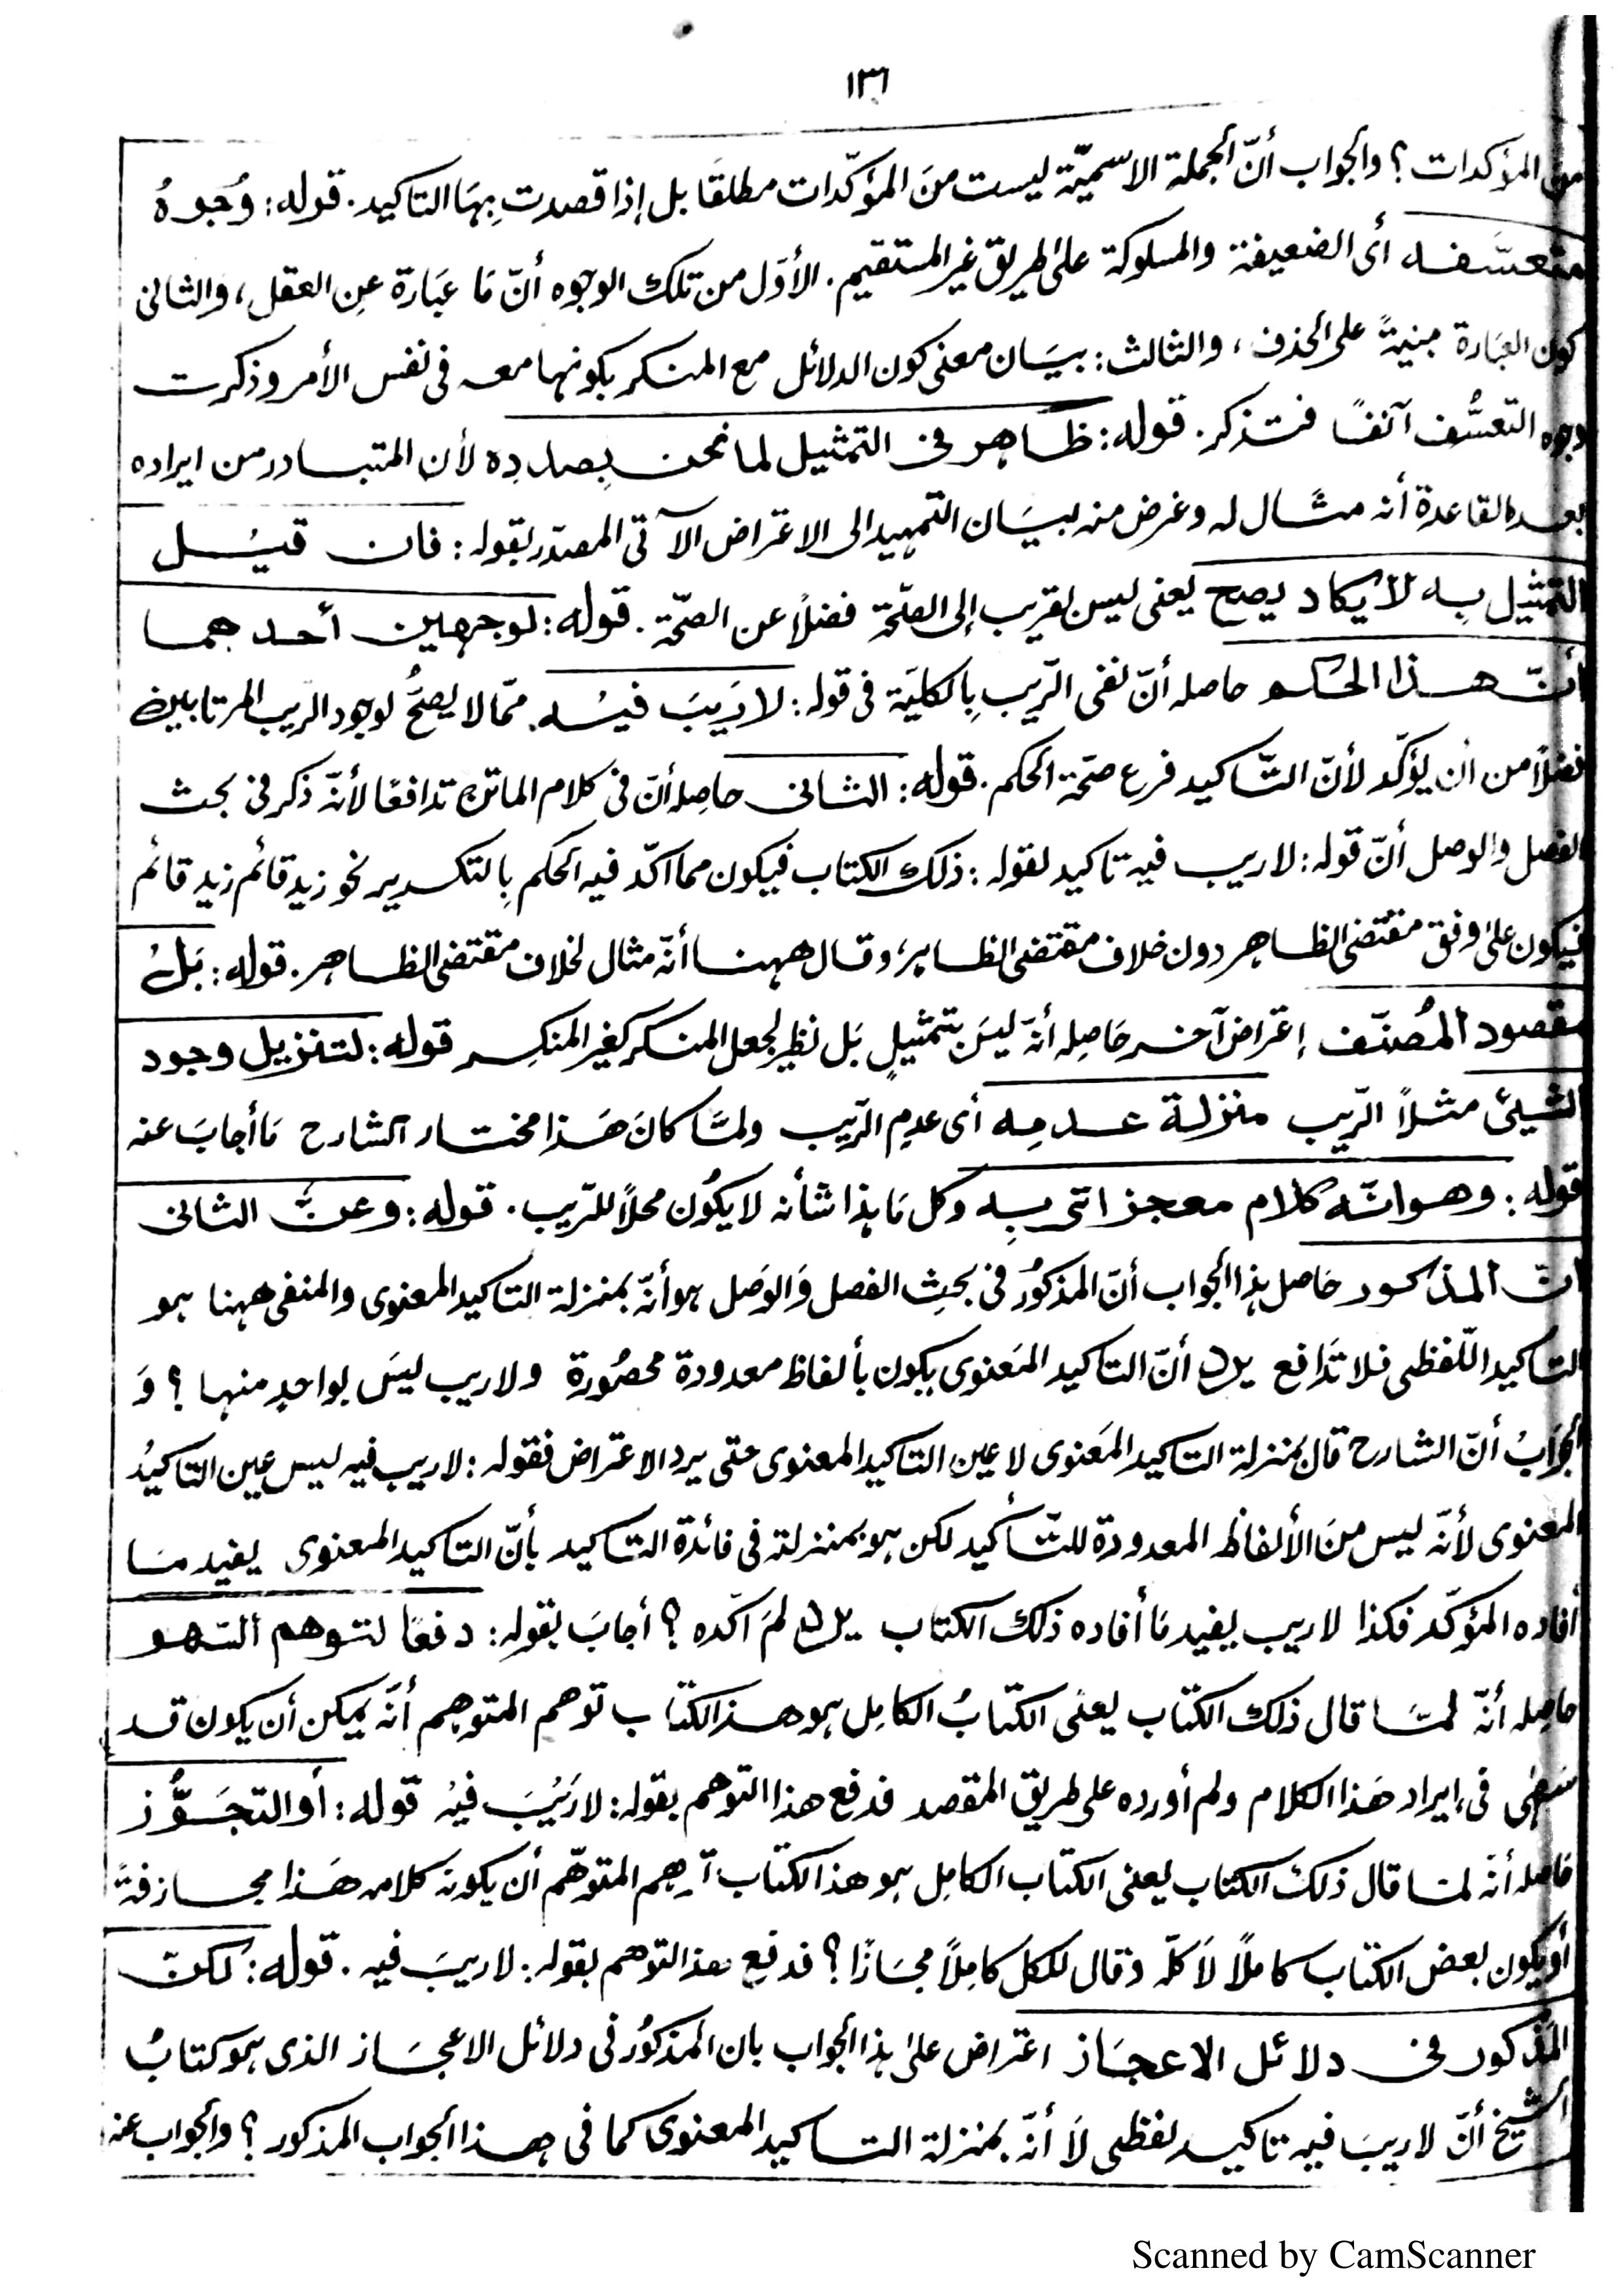 ١٣٦
من المؤكدات؟ والجواب أنّ الجملة الاسميّة ليست منَ المؤكّدات مطلقًا بل إذا قصدت بِهَا التاكيد. قوله: وُجوهُ
متعسَّفه أى الضعيفة والمسلوكة علىٰ طريق غير المستقيم. الأوّل من تلك الوجوه أنّ مَا عبَارة عنِ العقل، والثانى
كون العبَارة مبنيةً على الحذف، والثالث: بيَـان معنى كون الدلائل مع المنكر بكونها معه فى نفس الأمر وذكرت
وجوه التعسُّف آنفًا فتذكر. قوله: ظاهر فى التمثيل لما نحن بصدده لأن المتبادر من ايراده
بعد القاعدة أنه مثال له وغرض منه لبيَان التمهيد الى الاعتراض الآتى المصدّر بقوله: فان قيل
التمثيل بِه لا يكاد يصح يعنى ليس لقريب إلى الصّحة فضلًا عن الصّحّة. قوله: لوجهين أحدهما
أنّ هذا الحكم حاصله أنّ نفى الرّيبِ بِالكليَة فى قوله: لا رَيبَ فيه. ممّا لا يصحُّ لوجود الريب المرتابين
فضلًا من ان يؤكّد لأنّ التّاكيد فرع صحّة الحكم. قوله: الثانى حاصِله أنّ فى كلام الماتن تدافعًا لأنّه ذكر فى بحث
الفصل والوصل أنّ قوله: لاريب فيه تاكيد لقوله: ذلك الكتاب فيكون مما اكّد فيه الحكم بِالتكرير نحو زيد قائم زيد قائم
فيكون علىٰ وفق مقتضى الظاهر دون خلاف مقتضى الظاهر، وقال ههنا أنّه مثال لخلاف مقتضى الظاهر. قوله: بَلْ
مقصود المُصنّف إعتراض آخر حَاصِله أنّه ليسَ بتمثيلٍ بَل نظير لجعل المنكر كغير المنكِر قوله: لتنزيل وجود
الشيئ مثلًا الرّيب منزلة عدمِه أى عدمِ الرّيب ولمّا كانَ هَذا مختار الشارح مَا أجابَ عنه
قوله: وهو انّه كلام معجز اتى بِه وكل مَا هذا شأنه لا يكُون محلًا للرّيب. قوله: وعن الثانى
انّ المذكور حَاصل هذا الجواب أنّ المذكوُر فى بحثِ الفصل وَالوَصل هو أنّه بمنزلة التاكيد المعنوى والمنفى ههنا هو
التاكيد اللّفظى فلا تدَافع يرد أنّ التاكيد المعنوى يكون بألفاظ معدودة محصُورة ولاريب ليسَ بواحدٍ منها؟ وَ
الجوَابُ أنّ الشارح قال بمنزلة التاكيد المَعنوى لا عين التاكيد المعنوى حتى يرد الاعتراض فقوله: لاريب فيه ليس عين التاكيدُ
المعنوى لأنّه ليس منَ الألفاظ المعدودة للتّأكيد لكن هو بمنزلته فى فائدة التاكيد بأنّ التاكيد المعنوى يفيد مَا
أفاده المؤكّد فكذا لاريب يفيد مَا أفاده ذلك الكتاب يرد لمَ اكّده؟ أجابَ بقوله: دفعًا لتوهم السّهو
حاصِله أنّه لمّا قال ذلك الكتاب يعنى الكتابُ الكامِل هو هذا الكتاب توهم المتوهِم أنّه يمكن أن يكون قد
سَهىٰ فى ايراد هَذا الكلام ولم أورده على طريق المقصد فدفع هذا التوهم بقوله: لا رَيبَ فيهْ قوله: أو التجَوُّز
حَاصله أنّه لما قال ذلك الكتاب يعنى الكتاب الكامِل هو هذا الكتاب المتوهّم أن يكونَ كلامه هَذا مجازفةً
أو يكون بعض الكتاب كاملًا لَا كلّه وقال للكل كَامِلًا مجَازًا؟ فدفِع هذا التوهم بقوله: لاريبَ فيه. قوله: لكنّ
المَذكور فى دلائل الاعجَاز اعتراض علىٰ هذا الجواب بان المذكوُر فى دلائل الاعجَاز الذى هو كتابُ
الشيخ أنّ لاريبَ فيه تاكيد لفظى لَا أنّه بمنزلة التاكيد المعنوى كما فى هذا الجواب المذكور؟ والجواب عنه
Scanned by CamScanner